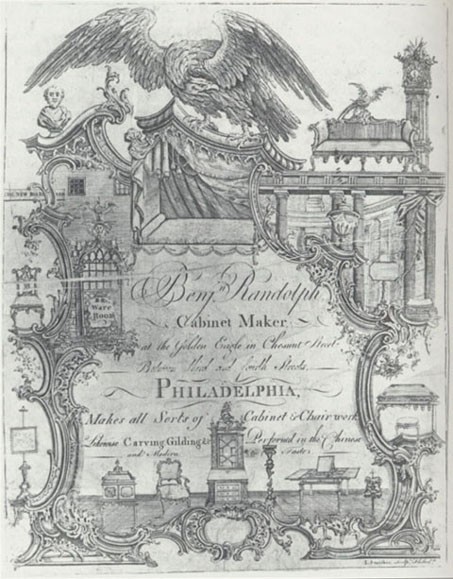 Ware
Room
Benj.n Randolph
Cabinet Maker
at the Golden Eagle in Chesnut Street
Between Third and Fourth Streets,
PHILADELPHIA,
Makes all Sorts of Cabinet & Chairwork
Likewise Carving Gilding &c Performed in the Chinese
and Modern Tastes